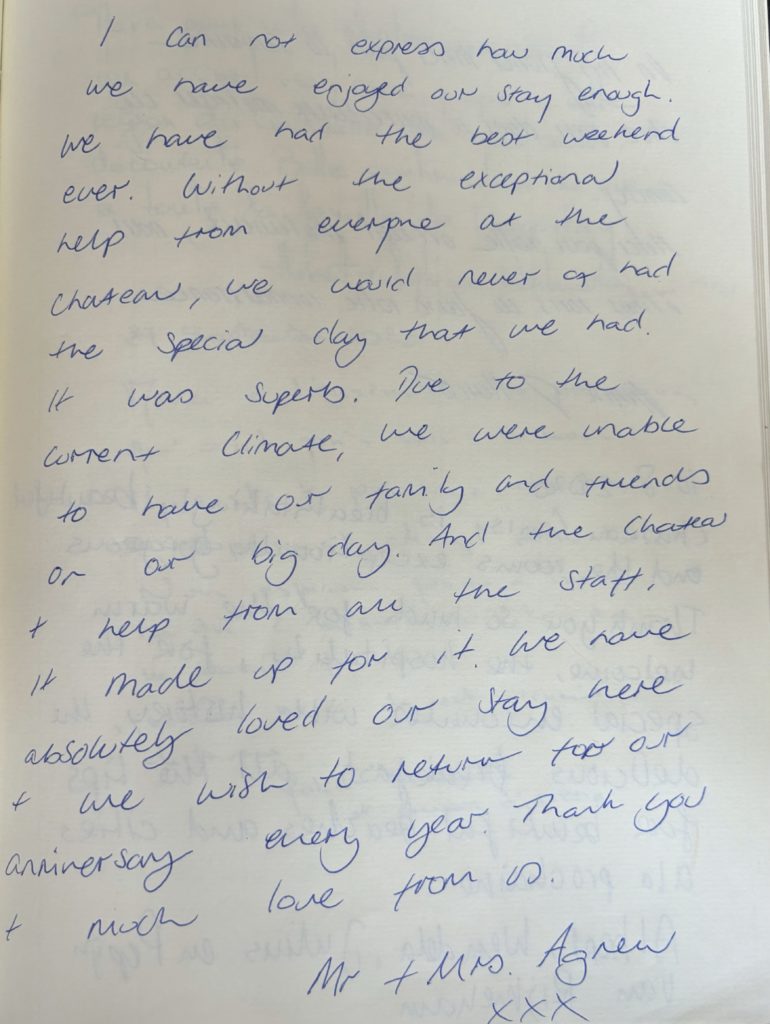 I Can not express how much
we have enjoyed our stay enough.
We have had the best weekend
ever. Without the exceptional
help from everyone at the
Chateau, we would never of had
the special day that we had.
It was Superb. Due to the
current Climate, we were unable
to have our family and friends
on our big day. And the Chateau
+ help from all the staff,
It made up for it. We have
absolutely loved our stay here
+ we wish to return for our
anniversary every year. Thank you
+ much love from us.
Mr + Mrs. Agnew
xxx